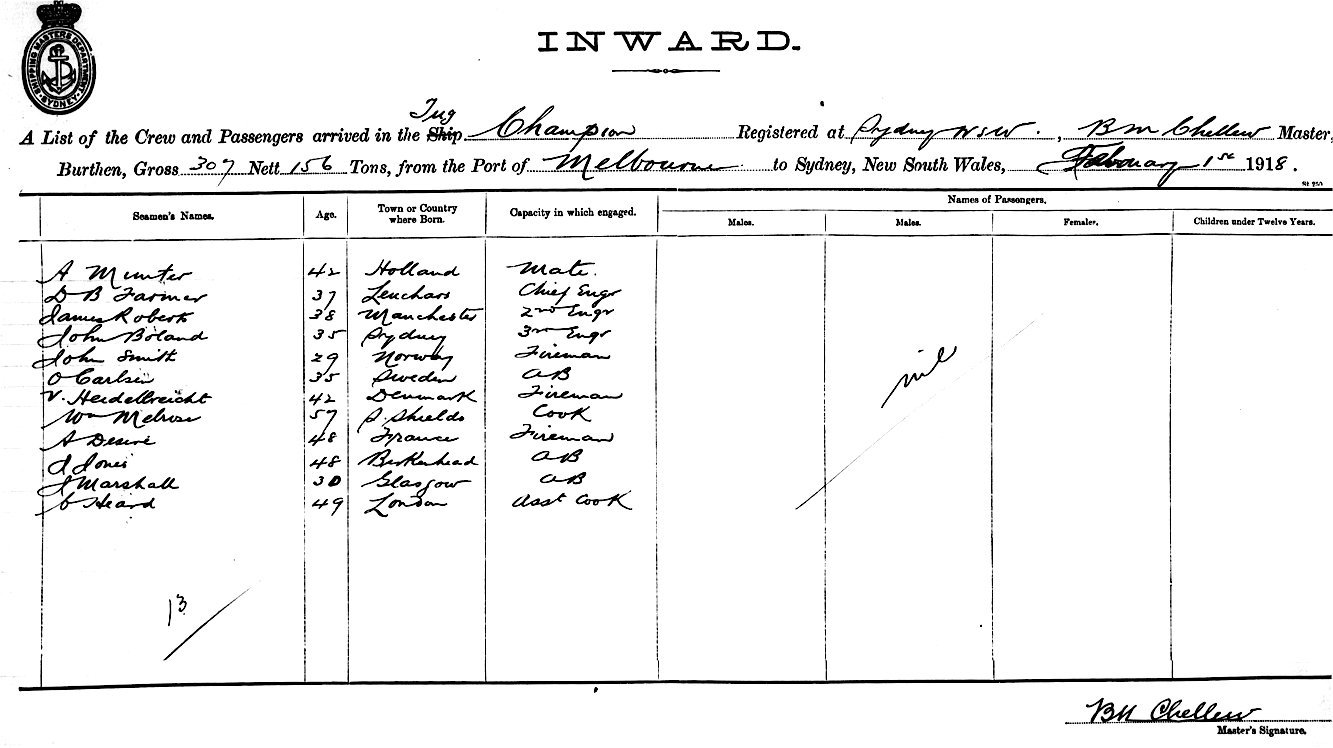 SHIPPING MASTERS DEPARTMENT
SYDNEY
INWARD.
Tug
A List of the Crew and Passengers arrived in the Ship Champion Registered at Sydney NSW., BM Chellew Master,
Burthen, Gross 307 Nett 156 Tons, from the Port of Melbourne to Sydney, New South Wales, February 1st 1918.
Names of Passengers.
Seamen's Names. Age. Town or Country where Born. Capacity in which engaged. Males. Males. Females. Children under Twelve Years.
A Munter 42 Holland Mate.
D B Farmer 37 Leuchars Chief Engr
James Roberts 38 Manchester 2nd Engr
John Boland 35 Sydney 3rd Engr
John Smith 29 Norway Fireman
O Carlsen 35 Sweden AB
V. Heidelbreicht 42 Denmark Fireman
Wm Melrose 57 S. Shields Cook
A Desiré 48 France Fireman
J Jones 48 Birkenhead AB
J Marshall 30 Glasgow AB
Heard 49 London Asst Cook
nil
13
BM Chellew
Master's Signature.